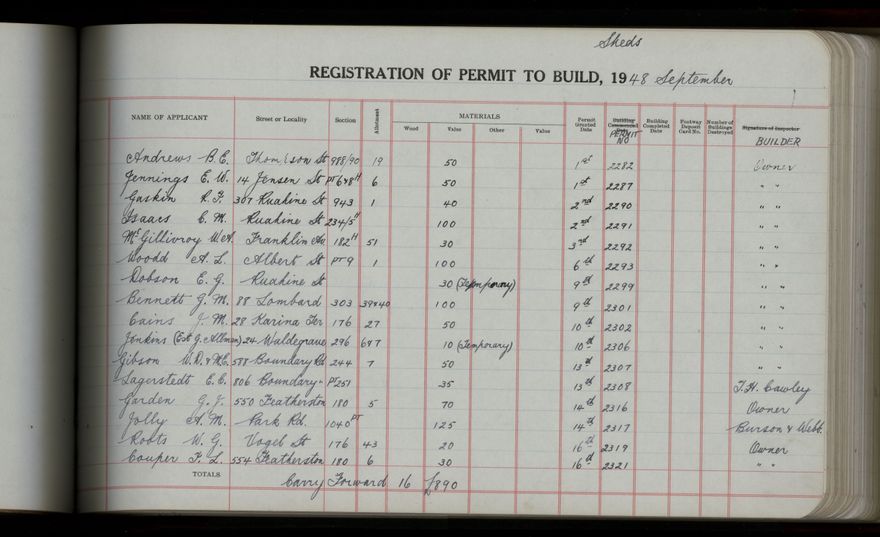 Sheds
REGISTRATION OF PERMIT TO BUILD, 1948 September
NAME OF APPLICANT Street or Locality Section Allotment MATERIALS Wood Value Other Value Permit Granted Date Building Commenced Date PERMIT NO Building Completed Date Footway Deposit Card No. Number of Buildings Destroyed Signature of Inspector BUILDER
Andrews B.E. Thomson St 988/90 19 50 1st 2282 Owner
Jennings E.W. 14 Jensen St PT 648H 6 50 1st 2287 " "
Gaskin R.F. 307 Ruahine St 943 1 40 2nd 2290 " "
Isaacs C.M. Ruahine St 234/5H 100 2nd 2291 " "
McGillivroy W.A. Franklin Av 182H 51 30 3rd 2292 " "
Woodd A.L. Albert St PT 9 1 100 6th 2293 " "
Dobson E.G. Ruahine St 30 (Temporary) 9th 2299 " "
Bennett G.M. 88 Lombard 303 39&40 100 9th 2301 " "
Cains J.M. 28 Karina Ter 176 27 50 10th 2302 " "
Jenkins (Est G. Allman) 24 Waldegrave 296 6&7 10 (Temporary) 10th 2306 " "
Gibson W.D. & M.E. 588 Boundary Rd 244 7 50 13th 2307 " "
Lagerstedt E.C. 806 Boundary " PT 251 35 13th 2308 T.H. Cawley
Garden G.J. 550 Featherston 180 5 70 14th 2316 Owner
Jolly A.M. Park Rd. 1040 PT 125 14th 2317 Burson & Webb.
Roots W.G. Vogel St 176 43 20 16th 2319 Owner
Couper F.L. 554 Featherston 180 6 30 16th 2321 " "
TOTALS Carry Forward 16 £890